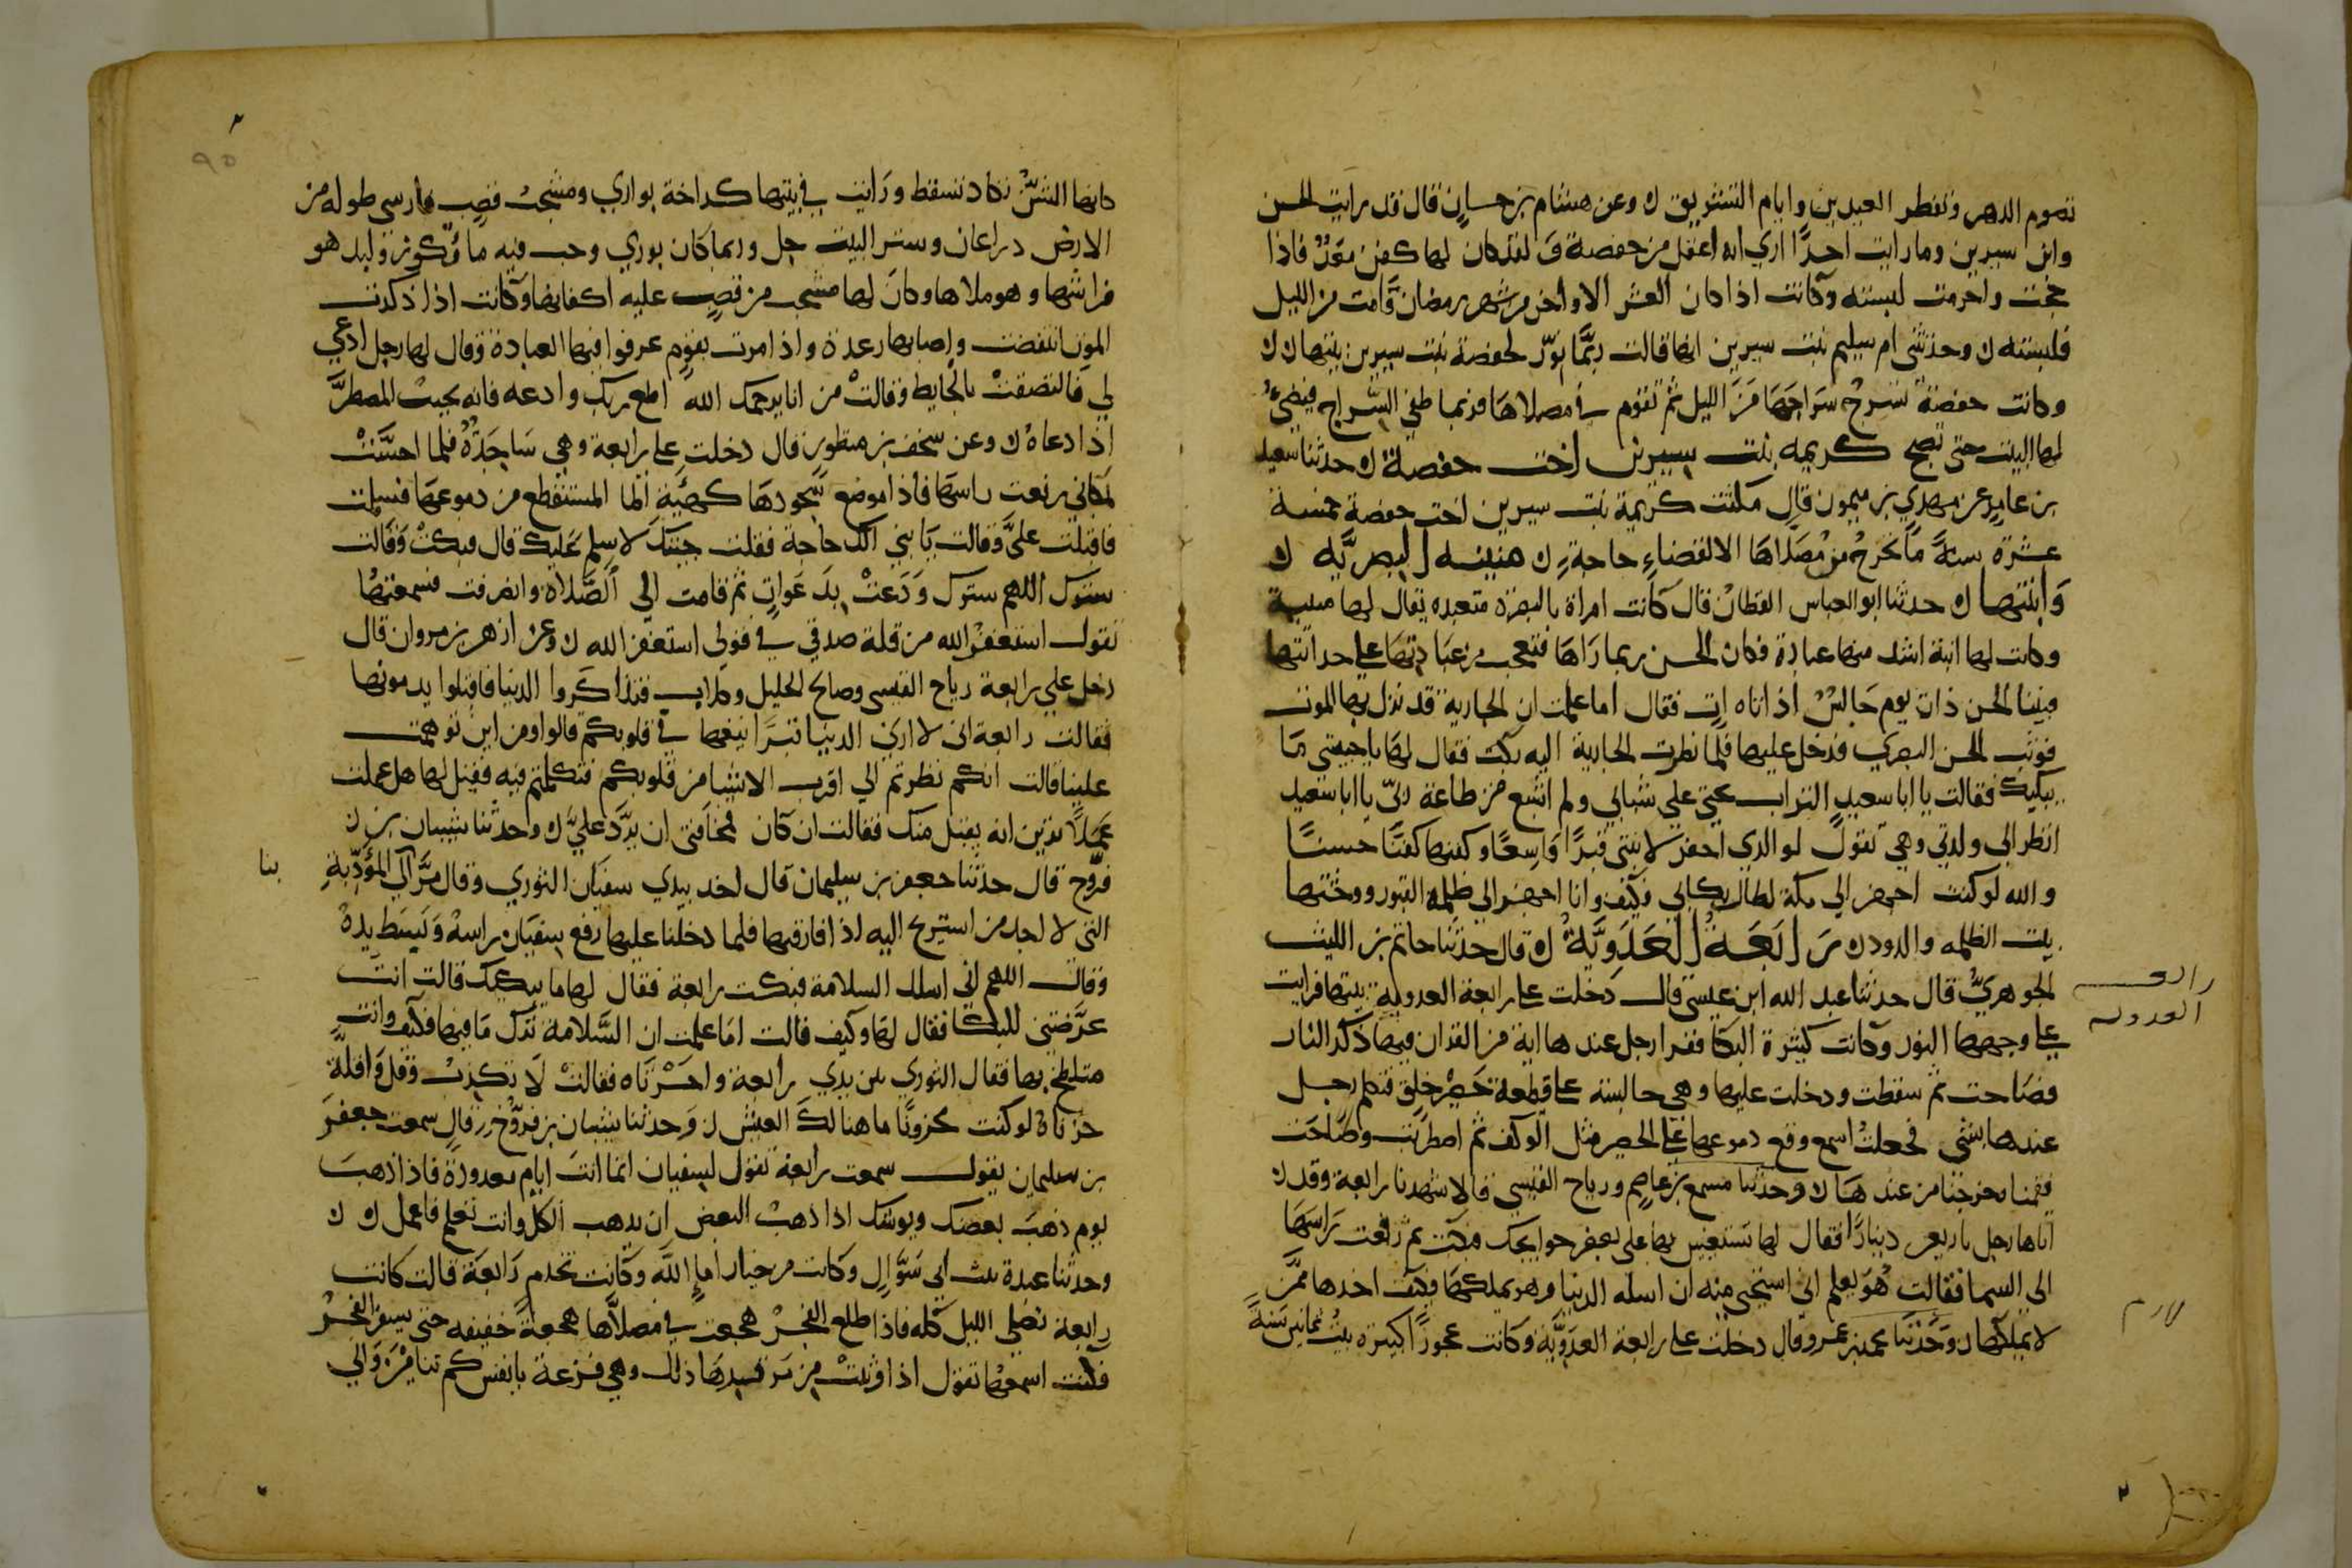 تصوم الدهر وتفطر العيدين وايام التشريق ك وعن هشام بن حسان قال قد رايت الحسن
وابن سيرين وما رايت احدًا اري انه اعقل من حفصة ق لقد كان لها كفن معَدٌ فاذا
حجت واحرمت لبسته وكانت اذا كان العشر الاواخر من شهر رمضان قامت من الليل
فلبسته ك وحدثتني ام سليم بنت سيرين انها قالت ربَّما نوّر لحفصة بنت سيرين بيتها ك ك
وكانت حفصة تسرجُ سرَاجَهَا مَنَ الليل ثم تقوم في مصلاهَا فربما طفي السِّراج فيضيءُ
لها البيت حتى تصبح كريمه بنت سيرين اخت حفصة ك حدثنا سعيد
بن عامرٍ عن مهدي بن ميمون قال مكثت كريمة بنت سيرين اخت حفصة خمسة
عشرة سنةً ما تخرجُ من مُصَلاهَا الا لقضاءِ حاجةٍ ك هنيئه البصريَّه ك
وَابنتها ك حدثنا ابو العباس القطانُ قال كانت امراة بالبصرة متعبده يقال لها منيبة
وكانت لها ابنة اشد منها عبادة فكان الحسن ربما رَاهَا فتعجب من عبَادتهَا علي حداثتها
فبينا الحسن ذات يوم جَالسٌ اذ اتاه اتٍ فقال اما علمت ان الجارية قد نزل بها الموت
فوثب الحسن البصري فدخل عليها فلما نظرت الجارية اليه بكت فقال لها يا حبيبتي مَا
يبكيك فقالت يا ابا سعيدٍ التراب يحثى علي شبابي ولم اشبع من طاعة ربّي يا ابا سعيد
انظر الي والدتي وهي تقولُ لوالدي احفر لابنتي قبرًا وَاسِعًا وكفنها كفنًا حسنًا
والله لو كنت اجهز الي مكة لطال بكاىي فكيف وانا اجهز الي ظلمة القبور ووحشتها
بيت الظلمه والدود ك رَابعَةُ العَدَوِيَّةُ ك قال حدثنا حاتم بن الليث
الجوهريُّ قال حدثنا عبد الله ابن عيسى قال دخلت علي رابعة العدويةِ بيتها فرايت
علي وجهها النور وكانت كثيرة البكا فقرا رجل عندها اية من القران فيها ذكر النار
فصَاحت ثم سقطت ودخلت عليها وهي جالسة علي قطعة حَصيرٍ خلق فتكلم رجل
عندها بشي فجعلتُ اسمع وقع دموعها علَى الحصير مثل الوكف ثم اضطربَت وصَاحَت
فقمنا وخرجنا من عندهَا ك وحدثنا مسمع بن عاصم ورياح القيسي قالا شهدنا رابعة وقد ك
اتاها رجل باربعين دينارًا فقال لها تستعينين بها علي بعض حوايجك فبكت ثم رفعت رَاسَهَا
الى السما فقالت هُوَ يعلم انى استحيى منه ان اسله الدنيا وهو يملكها فكيف اخذها ممَّن
لا يملكها ك وَحدَّثَنا محمد بن عمرو قال دخلت علي رابعة العدَويَّة وكانت عجوزًا كبيرة بنتُ ثمانين سَنَةً
رابعـــة
العدويه
كانها الشَّنُّ تكاد تسقط ورَايت في بيتها كراخة بواري ومشجبُ قصب فارسي طوله من
الارض ذراعان وستر البيت جل وربما كان بوري وحب فيه ما وّكوز ولبد هو
فراشها وهو مصلاها وكانَ لها مشجب من قصب عليه اكفانها وكانت اذا ذكرت
الموتَ انتفضت واصابها رعدة واذا مرت بقوم عرفوا فيها العبادة وقال لها رجل ادعي
لي فالتصقتْ بالحايط وقالتْ من انا يرحمك الله اطع ربك وادعه فانه يجيبُ المضطرَّ
اذا دعاهُ ك وعن سخف بن منظورٍ قال دخلت علي رابعة وهي سَاجدَةٌ فلما احسَّتْ
بمكاني رفعت راسهَا فاذا موضع سُجودهَا كهيْية الما المستنقع من دموعهَا فسلمت
فاقبلت علىَّ وقالت يَا بني الك حاجة فقلت جيتك لاسلم عَليك قال فبكتْ وقالت
سترك اللهم سترك وَدَعتْ بدَعَواتٍ ثم قامت الي الصَّلاه وانصرفت فسمعتهُا
تقول استغفرُ الله من قلة صدقي في قولى استغفر الله ك وعن ازهر بن مروان قال
دخل علي رابعة رياح القيسى وصالح الجليل وكلاب فتذاكَروا الدنيا فاقبلوا يذمونها
فقالت رابعة انى لا ارَي الدنيا بترَابيعها في قلوبكم قالوا ومن اين توهمت
علينا قالت انكم نظرتم الي اقرب الاشيا من قلوبكم فتكلمتم فيه فقيل لها هل عملت
عَملاً ترين انه يقبل منك فقالت ان كان فمخافتى ان يرَدَّ عليَّ ك وحدثنا شيبان بن ك
فرَّوح قال حدثنا جعفر بن سليمان قال اخد بيدي سفيَان الثوري وقال مرَّ الي المؤَدِّبةِ
التى لا اجد من استريح اليه اذا فارقتها فلما دخلنا عليها رفع سفيَان راسهُ وَبَسَط يدهُ
وقالَ اللهم اني اسالك السلامة فبكت رابعة فقال لها ما يبكيك قالت انتَ
عرَّضتنى للبكا فقال لهَا وكيف قالت امَا علمت ان السَّلامة تَرك مَا فيها فكيف وانت
متلطخ بها فقال الثوري بين يدي رابعة واحُزْنَاه فقالتْ لَا تكذبْ وقل وَاقلَّةَ
حزناهُ لو كنت محزونًا ما هنا لكَ العيش ك وَحدثنا شيبان بن فرَّوخ قال سمعت جعفرَ
بن سليمان يقول سمعت رابعة تقول لسفيان انما انتَ ايام معدودة فاذا ذهبَ
يوم ذهبَ بعضك ويوشك اذا ذهبَ البعض ان يذهب الكل وانت تعلم فاعمل ك ك
وحدثنا عبدة بنت ابي شوَّالٍ وكانت من خيار اماءِ اللَّه وكانت تخدم رَابعَة قالت كانت
رابعة تصلى الليل كله فاذا طلع الفجرُ هجعت في مصلاَّها هجعةً خفيفه حتى يسفر الفجرُ
فكنت اسمعهُا تقول اذا وثبتْ من مَرقدهَا ذلك وهي فزعة يا نفس كم تنامينَ وَالي
بنا
٩٥